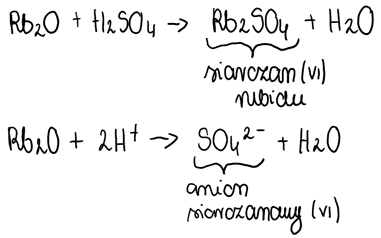 Rb₂O + H₂SO₄ → Rb₂SO₄ + H₂O
siarczan (VI)
rubidu
Rb₂O + 2H⁺ → SO₄²⁻ + H₂O
anion
siarczanowy (VI)